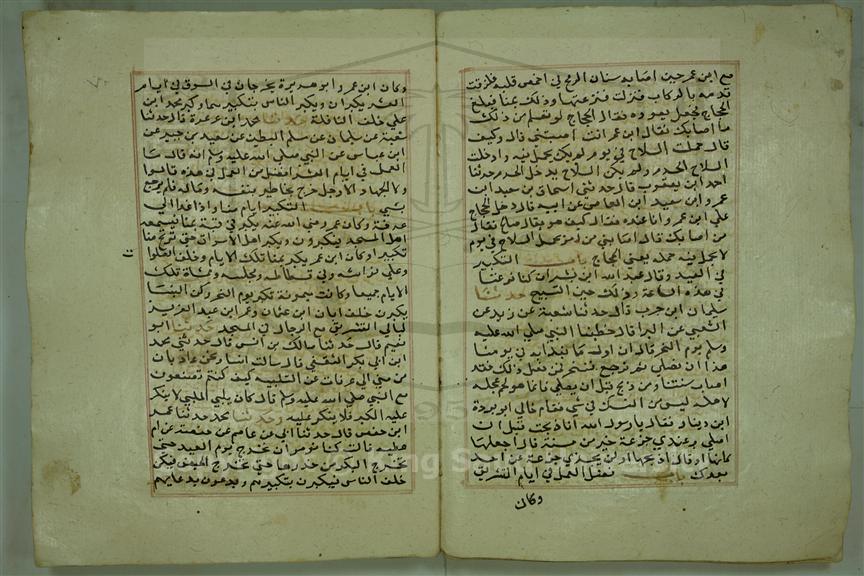 مع ابن عمر حين اصابه سنان الرمح في اخمص قدمه فلزقت
قدمه بالركاب فنزلت فنزعتها وذلك بمنا فبلغ
الحجاج فجعل يعوده فقال الحجاج لو نعلم من
ما اصابك فقال ابن عمر انت اصبتني قال وكيف
قال حملت السلاح في يوم لم يكن يحمل فيه وادخلت
السلاح الحرم ولم يكن السلاح يدخل الحرم حدثنا
احمد ابن يعقوب قال حدثني اسحاق بن سعيد ابن
عمرو ابن سعيد ابن العاص عن ابيه قال دخل الحجاج
علي ابن عمر وانا عنده فقال كيف هو فقال صالح فقال
من اصابك قال اصابني من امر بحمل السلاح في يوم
لا يحل فيه حمله يعني الحجاج باب التكبير
في العيد وقال عبد الله ابن بسر ان كنا فرغنا
في هذه الساعة وذلك حين التسبيح حدثنا
سليمان ابن حرب قال حدثنا شعبة عن زبيد عن
الشعبي عن البرا قال خطبنا النبي صلي الله عليه
وسلم يوم النحر قال ان اول ما نبدا به في يومنا
هذا ان نصلي ثم نرجع فننحر فمن فعل ذلك فقد
اصاب سنتنا ومن ذبح قبل ان يصلي فانما هو لحم عجله
لاهله ليس من النسك في شي فقام خالي ابو بردة
ابن دينار فقال يا رسول الله انا ذبحت قبل ان
اصلي وعندي جذعة خير من مسنة قال اجعلها
مكانها او قال اذبحها ولن تجزي جذعة عن احد
بعدك باب فضل العمل في ايام التشريق
وكان
وكان ابن عمر وابو هريرة يخرجان في السوق في ايام
العشر يكبران ويكبر الناس بتكبيرهما وكبر محمد ابن
علي خلف النافلة حدثنا محمد ابن عرعرة قال حدثنا
شعبة عن سليمان عن مسلم البطين عن سعيد بن جبير عن
ابن عباس عن النبي صلي الله عليه وسلم انه قال ما
العمل في ايام العشر افضل من العمل في هذه قالوا
ولا الجهاد الا رجل خرج يخاطر بنفسه وماله فلم يرجع
بشي باب التكبير ايام منا واذا غدا الي
عرفة وكان عمر رضي الله عنه يكبر في قبة بمنا فيسمعه
اهل المسجد فيكبرون ويكبر اهل الاسواق حتي ترتج منا
تكبيرا وكان ابن عمر يكبر بمنا تلك الايام وخلف الصلوات
وعلي فراشه وفي فسطاطه ومجلسه وممشاه تلك
الايام جميعا وكانت ميمونة تكبر يوم النحر وكن النسا
يكبرن خلف ابان ابن عثمان وعمر ابن عبد العزيز
ليالي التشريق مع الرجال في المسجد حدثنا ابو
نعيم قال حدثنا مالك بن انس قال حدثني محمد
ابن ابي بكر الثقفي قال سالت انسا ونحن غاديان
من مني الي عرفات عن التلبية كيف كنتم تصنعون
مع النبي صلي الله عليه وسلم قال كان يلبي الملبي لا ينكر
عليه ويكبر المكبر فلا ينكر عليه حدثنا محمد حدثنا عمر
ابن حفص قال حدثنا ابي عن عاصم عن حفصة عن ام
عطيه قالت كنا نومر ان نخرج يوم العيد حتي
تخرج البكر من خدرها حتي تخرج الحيض فيكن
خلف الناس فيكبرن بتكبيرهم ويدعون بدعايهم